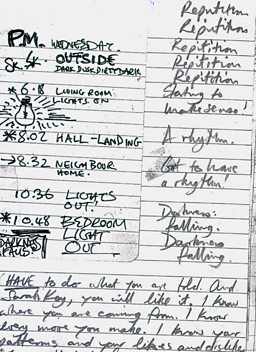 P.M. WEDNESDAY.
OUTSIDE
DARK DUSK DIRTY DARK
*6.18 LIVING ROOM
LIGHTS ON
*8.02 HALL-LANDING
→8.32 NEIGHBOUR
HOME.
10.36 LIGHTS
OUT.
*10.48 BEDROOM
LIGHT
OUT
DARKNESS
FALLS
Reputition
Reputition
Repitition
Repitition
Repitition
Stating to
make sense!
A rhythm.
Got to have
a rhythm!
Darkness:
falling.
Darkness
falling.
HAVE to do what you are told. And
Sarah Kay, you will like it. I know
where you are coming from. I know
every move you make. I know your
patterns and your likes and dislike